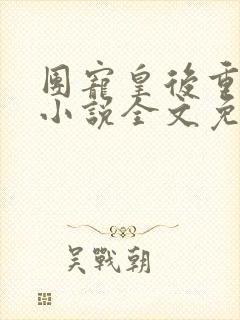 團寵皇後重
小說全文免
吳戰朝